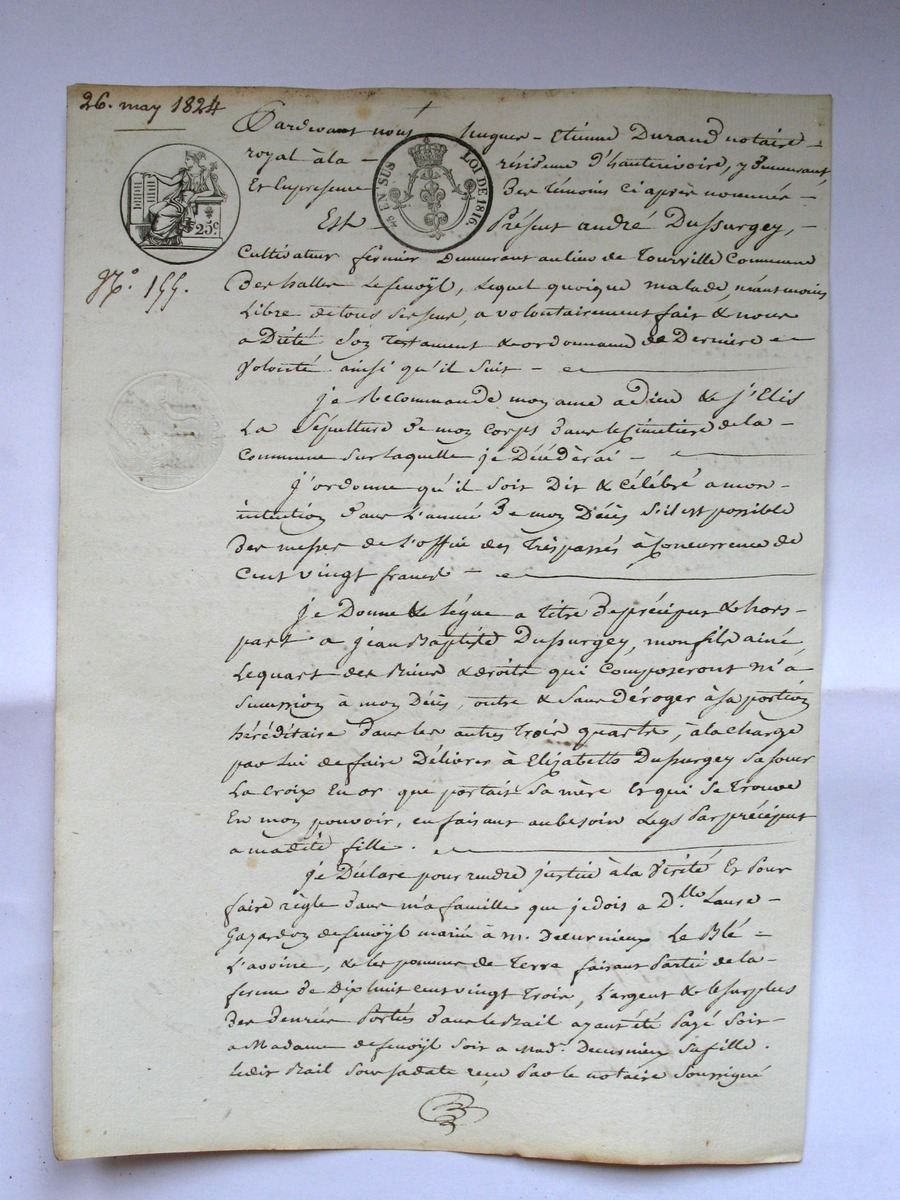 26. may 1824
Pardevant nous hugues - Etienne Durand notaire -
royal à la - résidence d'hauterivoire, y demeurant
Et En presence des témoins ci après nommés -
Est - Présent andré Dussurgey, -
Cultivateur fermier demeurant au lieu de Tourville Commune
des halles Lefenoÿl, Lequel quoique malade, néantmoins
Libre de tous ses sens, a volontairement fait & nous
a Dicté Son Testament & ordonnance de Derniere
Volonté ainsi qu'il suit -
je Recommande mon ame a dieu & j'Elis
La Sépulture de mon Corps dans le Cimetiere de la -
Commune Sur laquelle je Décèderai -
j'ordonne qu'il soit Dit & Célébré a mon -
intention dans L'année de mon Décès S'il est possible
des messes de L'office des Trespassés à Concurrence de
Cent vingt francs -
je Donne & Lègue a titre de préciput & hors -
part a jean Baptiste Dussurgey, mon fils ainé,
Le quart des Biens & droits qui Composeront m'a
Succession à mon Décès, outre & Sans déroger à sa portion
héréditaire dans les autres Trois quarts, à la charge
par Lui de faire Délivrer à Elizabeth Dussurgey sa soeur
La Croix En or que portait Sa mère Et qui se Trouve
En mon pouvoir, en faisant au besoin Legs Par préciput
a madite fille.
je Déclare pour rendre justice à la Vérité Et Pour
faire règle dans m'a famille que je dois a D.lle Laure -
Gazardon de fenoÿl mariée à m. Decurnieux Le Blé -
L'avoine, & les pommes de Terre faisant Partie de la -
ferme de Dix huit cent vingt Trois, L'argent & le surplus
des denrées Portés dans le Bail ayant été Payé Soit -
a Madame de fenoÿl Soit a Mad. Decurnieux Sa fille.
Ledit Bail Sous sa date reçu Par le notaire Soussigné
25c
EN SUS
LOI DE 1816.
N.º 155.